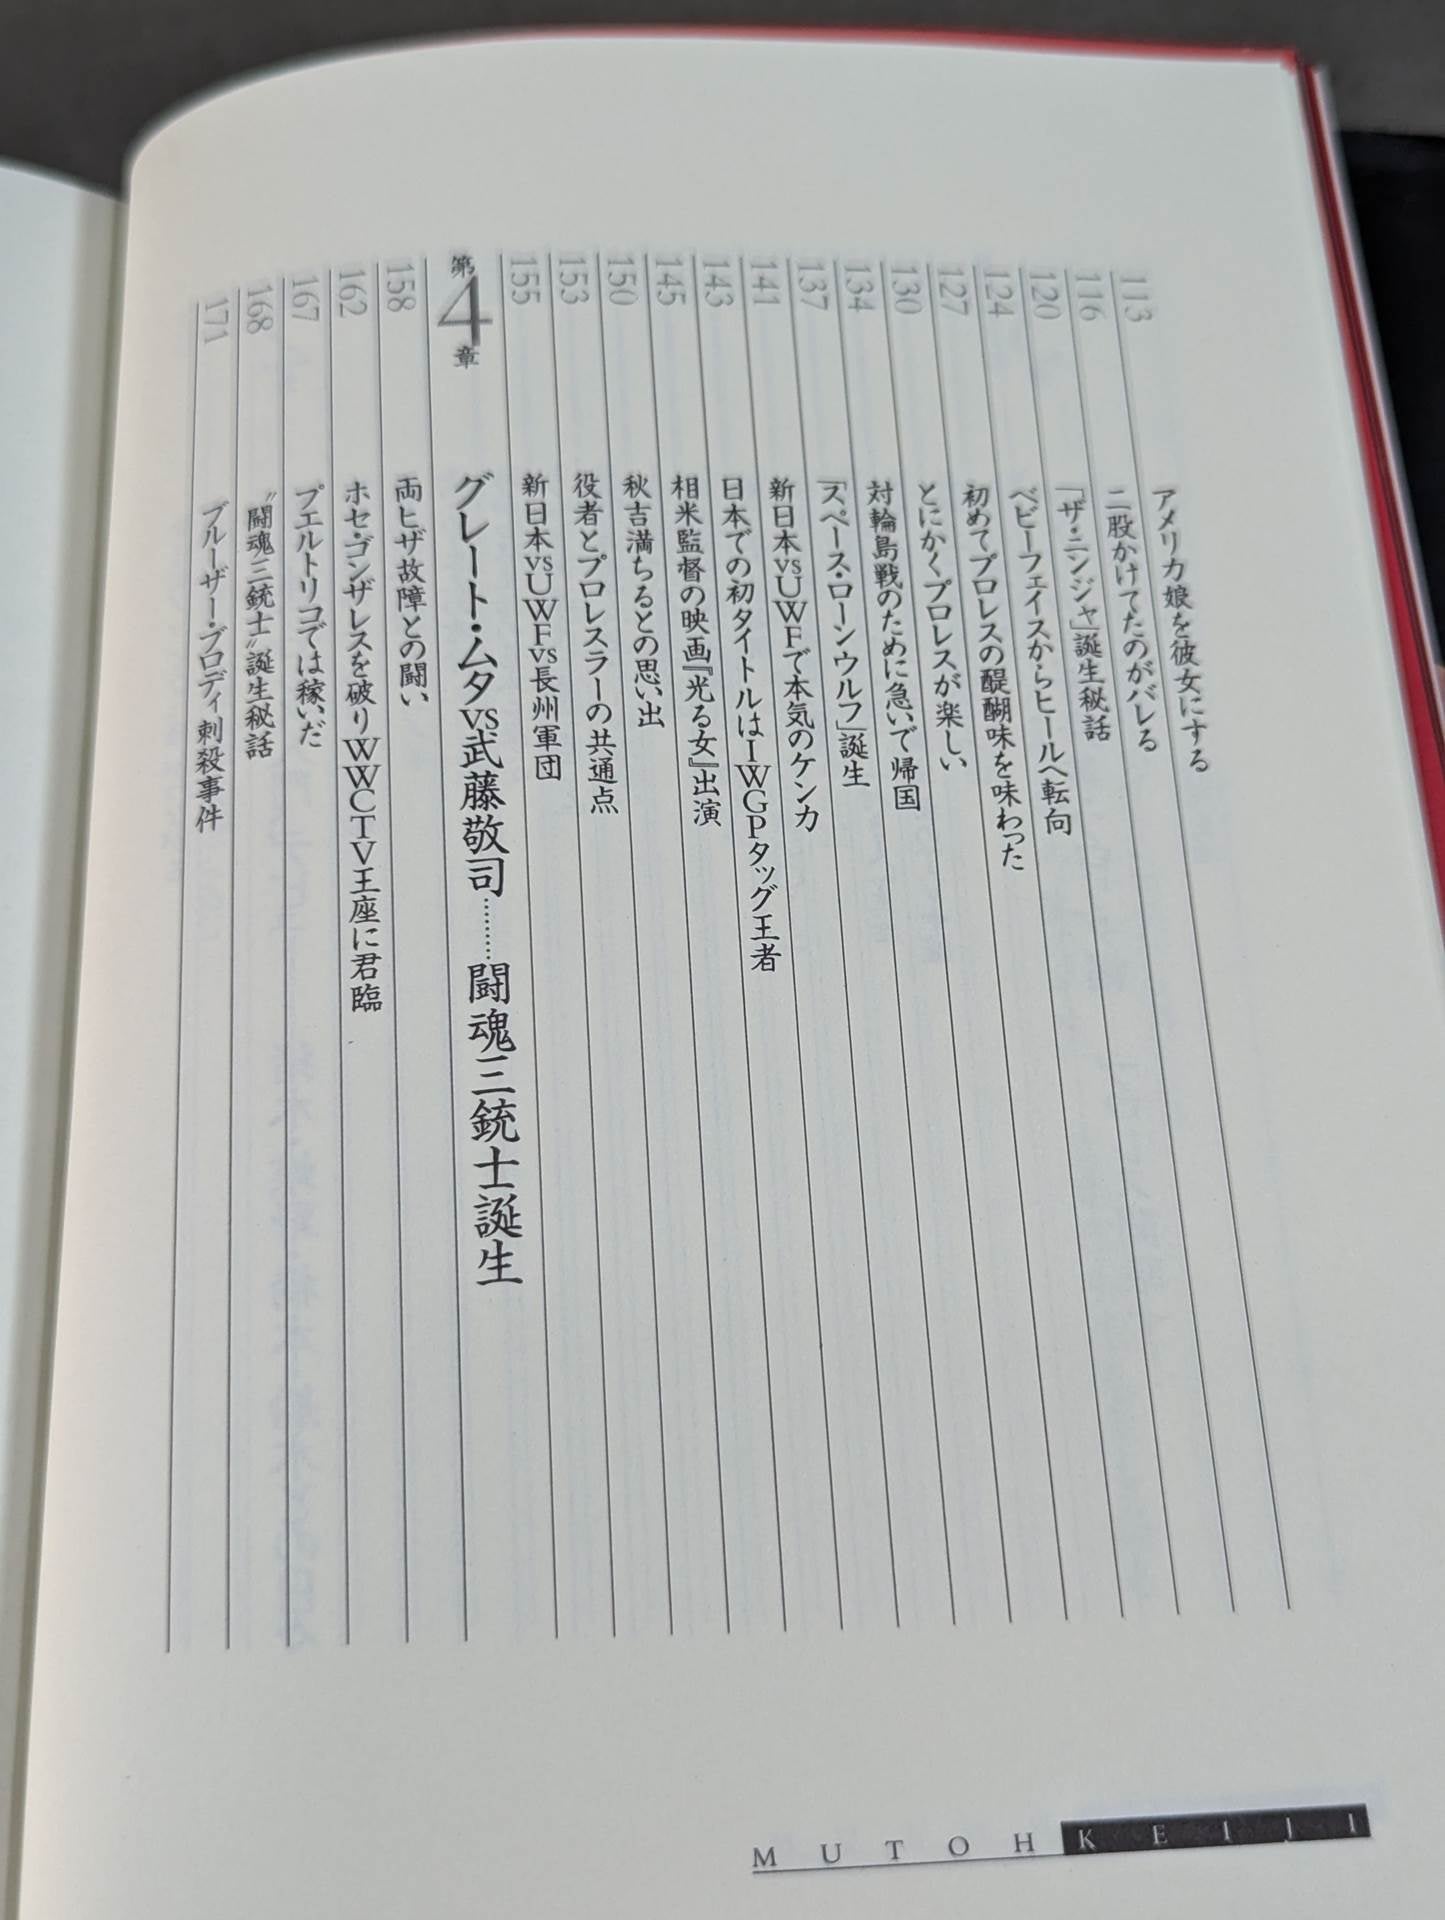 113 アメリカ娘を彼女にする
116 二股かけてたのがバレる
120 「ザ・ニンジャ」誕生秘話
124 ベビーフェイスからヒールへ転向
127 初めてプロレスの醍醐味を味わった
130 とにかくプロレスが楽しい
134 対輪島戦のために急いで帰国
137 「スペース・ローンウルフ」誕生
141 新日本vsUWFで本気のケンカ
143 日本での初タイトルはIWGPタッグ王者
145 相米監督の映画『光る女』出演
150 秋吉満ちるとの思い出
153 役者とプロレスラーの共通点
155 新日本vsUWFvs長州軍団
第4章 グレート・ムタvs武藤敬司………闘魂三銃士誕生
158 両ヒザ故障との闘い
162 ホセ・ゴンザレスを破りWWCTV王座に君臨
167 プエルトリコでは稼いだ
168 〝闘魂三銃士〟誕生秘話
171 ブルーザー・ブロディ刺殺事件
MUTOH KEIJI